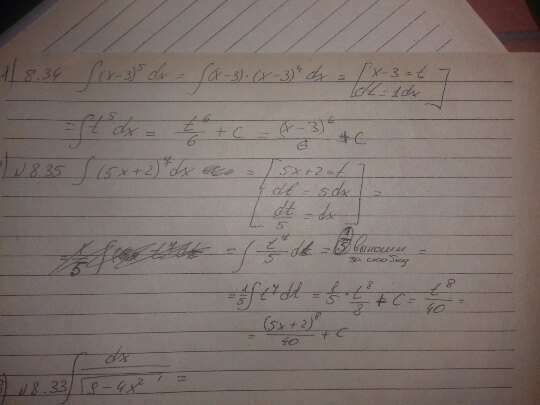 1) 8.34 ∫(x-3)⁵ dx = ∫(x-3)·(x-3)⁴ dx = [x-3=t
dt=1dx]
= ∫t⁵ dx = t⁶/6 + C = (x-3)⁶/6 + C
) √8.35 ∫(5x+2)⁷ dx = [5x+2=t
dt=5dx =
dt/5 = dx]
= ∫ t⁷/5 dt = 1/5 выносим =
за скобку
= 1/5 ∫t⁷ dt = 1/5 · t⁸/8 + C = t⁸/40 =
= (5x+2)⁸/40 + C
√8.33 ∫ dx/√(9-4x²) =